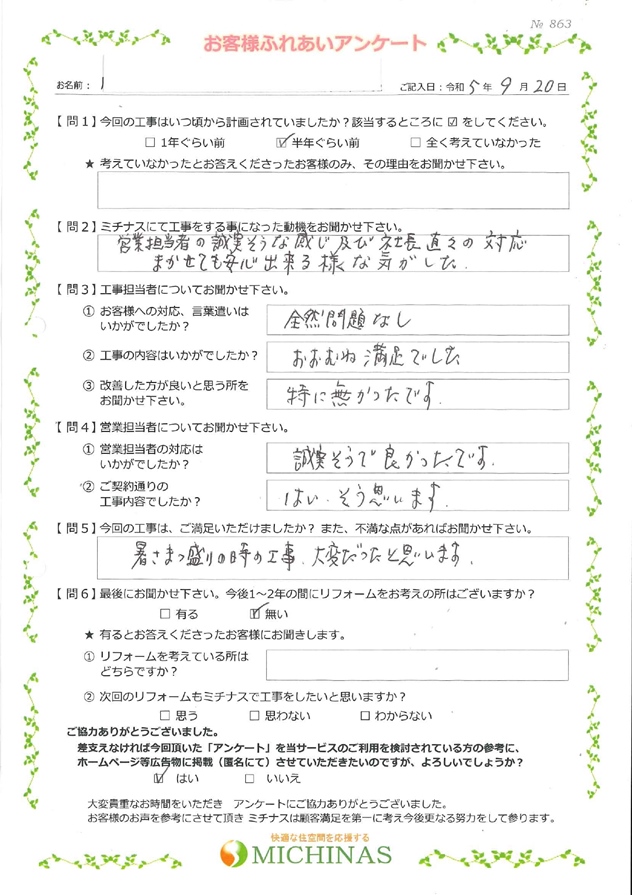 № 863
お客様ふれあいアンケート
お名前：
ご記入日：令和 5 年 9 月 20 日
【問1】今回の工事はいつ頃から計画されていましたか？該当するところに ☑ をしてください。
□ 1年ぐらい前 ☑ 半年ぐらい前 □ 全く考えていなかった
★ 考えていなかったとお答えくださったお客様のみ、その理由をお聞かせ下さい。
【問2】ミチナスにて工事をする事になった動機をお聞かせ下さい。
営業担当者の誠実そうな感じ及び社長直々の対応
まかせても安心出来る様な気がした.
【問3】工事担当者についてお聞かせ下さい。
① お客様への対応、言葉遣いは
いかがでしたか？
全然問題なし
② 工事の内容はいかがでしたか？
おおむね満足でした
③ 改善した方が良いと思う所を
お聞かせ下さい。
特に無かったです.
【問4】営業担当者についてお聞かせ下さい。
① 営業担当者の対応は
いかがでしたか？
誠実そうで良かったです.
② ご契約通りの
工事内容でしたか？
はい.そう思います.
【問5】今回の工事は、ご満足いただけましたか？また、不満な点があればお聞かせ下さい。
暑さまっ盛りの時の工事.大変だったと思います.
【問6】最後にお聞かせ下さい。今後1～2年の間にリフォームをお考えの所はございますか？
□ 有る ☑ 無い
★ 有るとお答えくださったお客様にお聞きします。
① リフォームを考えている所は
どちらですか？
② 次回のリフォームもミチナスで工事をしたいと思いますか？
□ 思う □ 思わない □ わからない
ご協力ありがとうございました。
差支えなければ今回頂いた「アンケート」を当サービスのご利用を検討されている方の参考に、
ホームページ等広告物に掲載（匿名にて）させていただきたいのですが、よろしいでしょうか？
☑ はい □ いいえ
大変貴重なお時間をいただき アンケートにご協力ありがとうございました。
お客様のお声を参考にさせて頂き ミチナスは顧客満足を第一に考え今後更なる努力をして参ります。
快適な住空間を応援する
MICHINAS